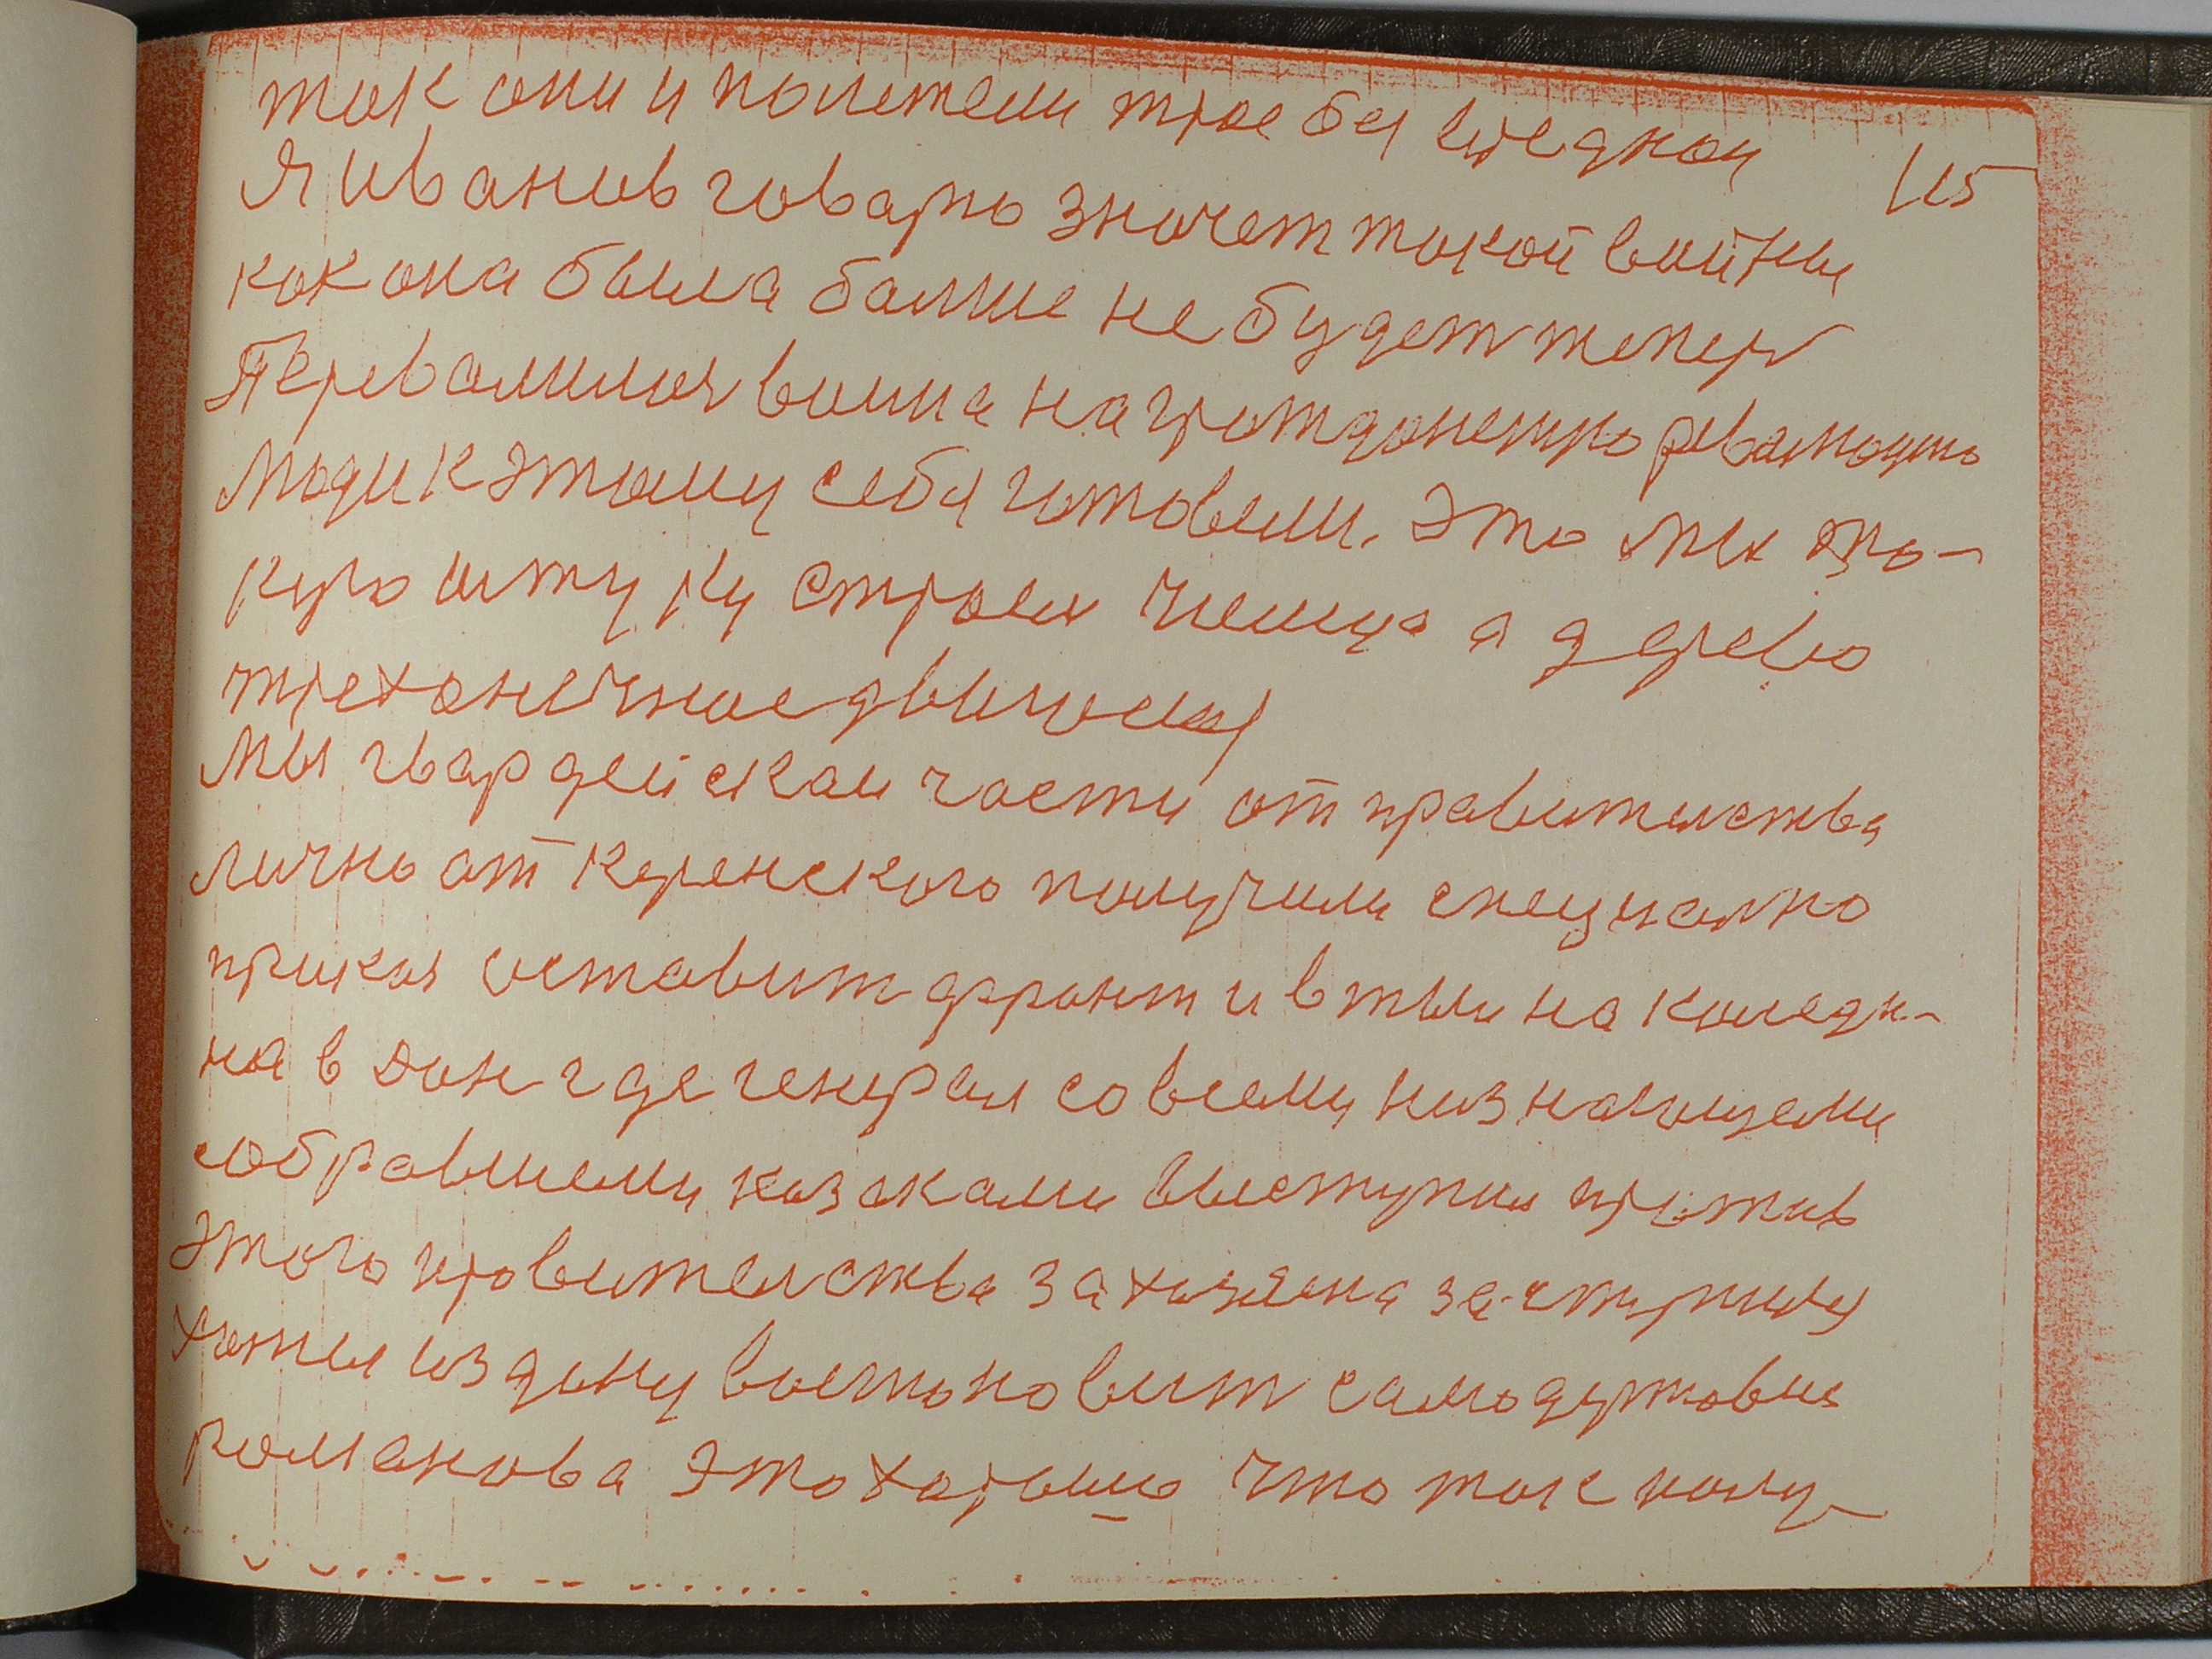 так они и полетели трое бы вредной
115
Я иванов говарю значет такой войны
как она была балше не будет тепер
Перевалилоя воина на гражданскую револоцию
люди к этому себя готовели. Это мы та-
кую штуку строем а дерево
треханечное двигоем
Мы гвардейскаи части от правителства
лично от Керенского получили специално
приказ оставит фронт и в тыл на каледи-
на в Дон где генерал со всеми незнающеми
собравшеми казаками выступил против
этого правителства за хазяена заступилоя
хотел из дону востоновит самодержовие
романова это харашо что так полу-